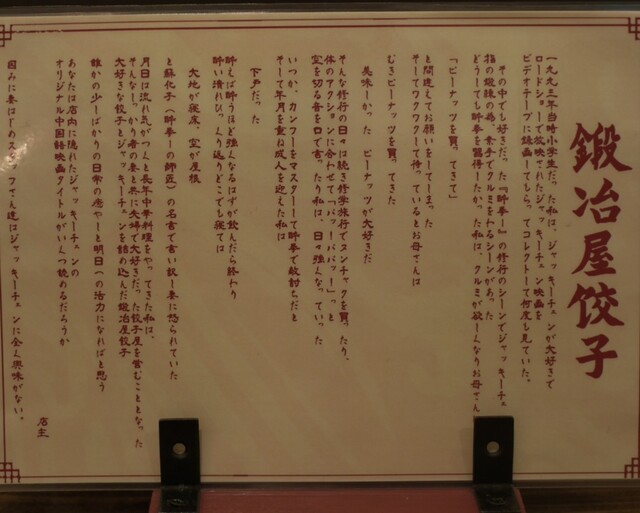 鍛冶屋餃子
一九九三年当時小学生だった私は、ジャッキーチェンが大好きで
ロードショーで放映されたジャッキーチェン映画を
ビデオテープに録画してもらってコレクトして何度も見ていた。
その中でも好きだった『酔拳』の修行のシーンでジャッキーチェン
指の鍛錬の為、素手でクルミをわるシーンがあった
どうしても酔拳を習得したかった私は、クルミが欲しくなりお母さんに
「ピーナッツを買ってきて」
と間違えてお願いをしてしまった
そしてワクワクして待っているとお母さんは
むきピーナッツを買ってきた
美味しかった ピーナッツが大好きだ
そんな修行の日々は続き修学旅行でヌンチャクを買ったり、
体のアクションに合わせて「バッ!ババッ!」っと
空を切る音を口で言ったり私は、日々強くなっていった
いつか、カンフーをマスターして酔拳で敵討ちだと
そして年月を重ね成人を迎えた私は
下戸だった
酔えば酔うほど強くなるはずが飲んだら終わり
酔い潰れひっくり返りどこでも寝ては
大地が寝床、空が屋根
と蘇化子(酔拳の師匠)の名言で言い訳し妻に怒られていた
月日は流れ気がつくと長年中華料理をやってきた私は、
そんなしっかり者の妻と共に夫婦で大好きだった餃子屋を営むこととなった
大好きな餃子とジャッキーチェンを詰め込んだ鍛冶屋餃子
誰かの少しばかりの日常の癒やしと明日への活力になればと思う
あなたは店内に隠れたジャッキーチェンの
オリジナル中国語映画タイトルがいくつ読めるだろうか
因みに妻はじめスタッフさん達はジャッキーチェンに全く興味がない。
店主